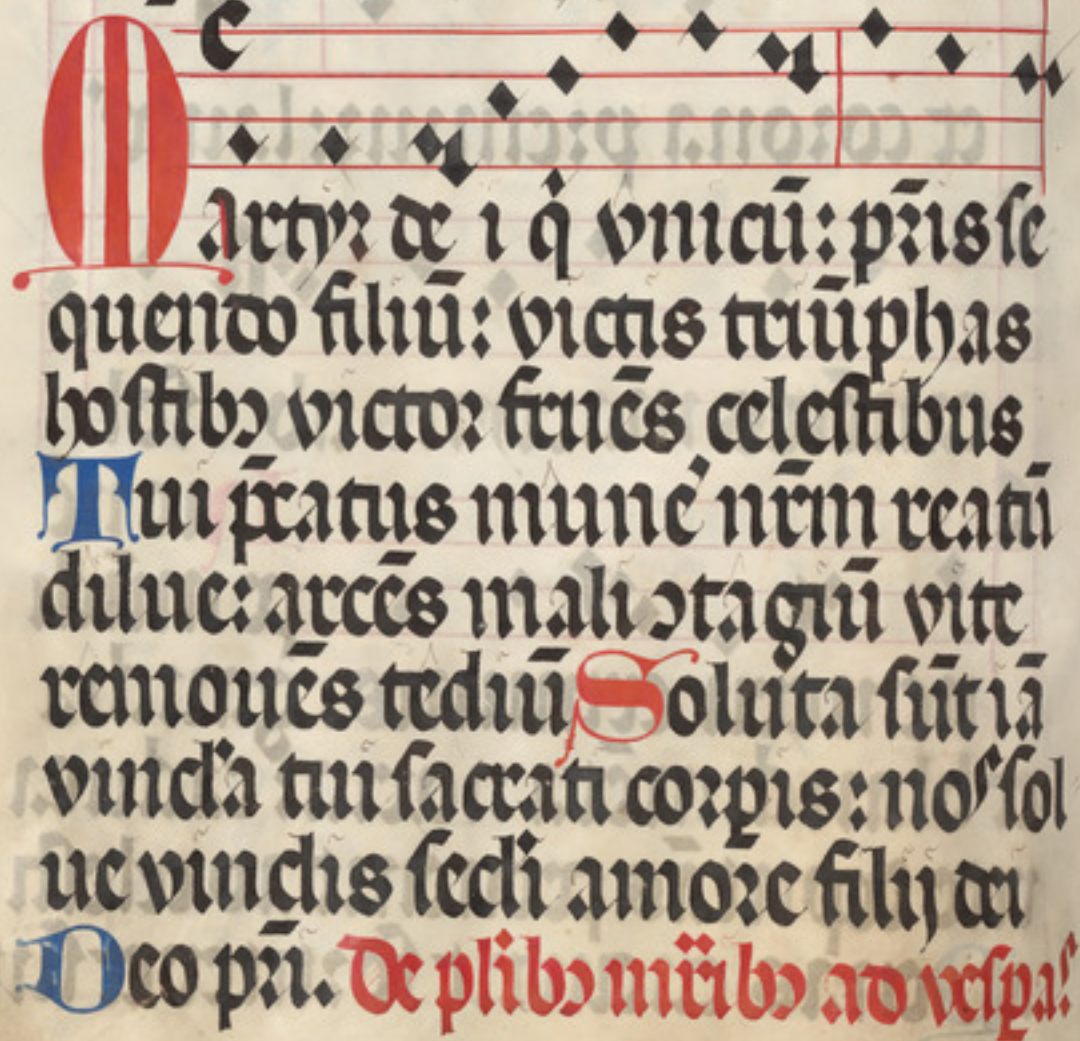 Martyr de i q̇ vnicū: pr̄is se
quendo filiū: victis triūphas
hostibꝰ victor fruēs celestibus
Tui p̄catus mune nr̄m reatū
dilue: arcēs mali ↄtagiū vite
remouēs tediū Soluta sūt iā
vincla tui sacrati corpis: nos sol
ue vinclis secli amore filij dei
Deo pr̄i. De plibꝰ mr̄ibꝰ ad vespas